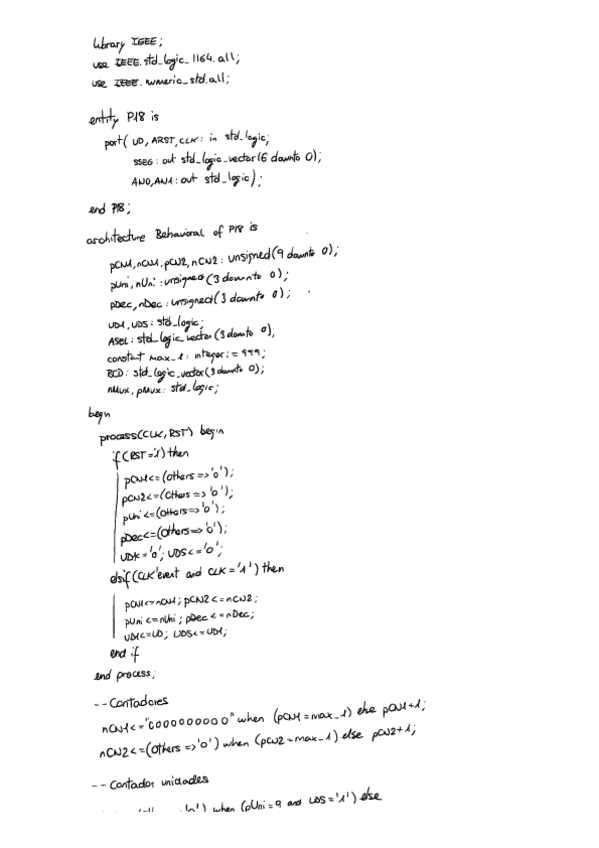 library IEEE;
use IEEE.std_logic_1164.all;
use IEEE.numeric_std.all;
entity P18 is
port( UD, ARST, CLK: in std_logic;
SSEG: out std_logic_vector(6 downto 0);
AN0, AN1: out std_logic);
end P18;
architecture Behavioral of P18 is
pCN1, nCN1, pCN2, nCN2: unsigned(9 downto 0);
pUni, nUni: unsigned(3 downto 0);
pDec, nDec: unsigned(3 downto 0);
UD1, UDS: std_logic;
ASEL: std_logic_vector(3 downto 0);
constant max_1: integer:= 999;
BCD: std_logic_vector(3 downto 0);
nMux, pMux: std_logic;
begin
process(CLK, RST) begin
if(RST='1') then
pCN1<=(others=>'0');
pCN2<=(others=>'0');
pUni<=(others=>'0');
pDec<=(others=>'0');
UD1<='0'; UDS<='0';
elsif(CLK'event and CLK='1') then
pCN1<=nCN1; pCN2<=nCN2;
pUni<=nUni; pDec<=nDec;
UD1<=UD; UDS<=UD1;
end if
end process;
-- Contadores
nCN1<="0000000000" when (pCN1=max_1) else pCN1+1;
nCN2<=(others=>'0') when (pCN2=max_1) else pCN2+1;
-- Contador unidades
'0') when (pUni=9 and UDS='1') else